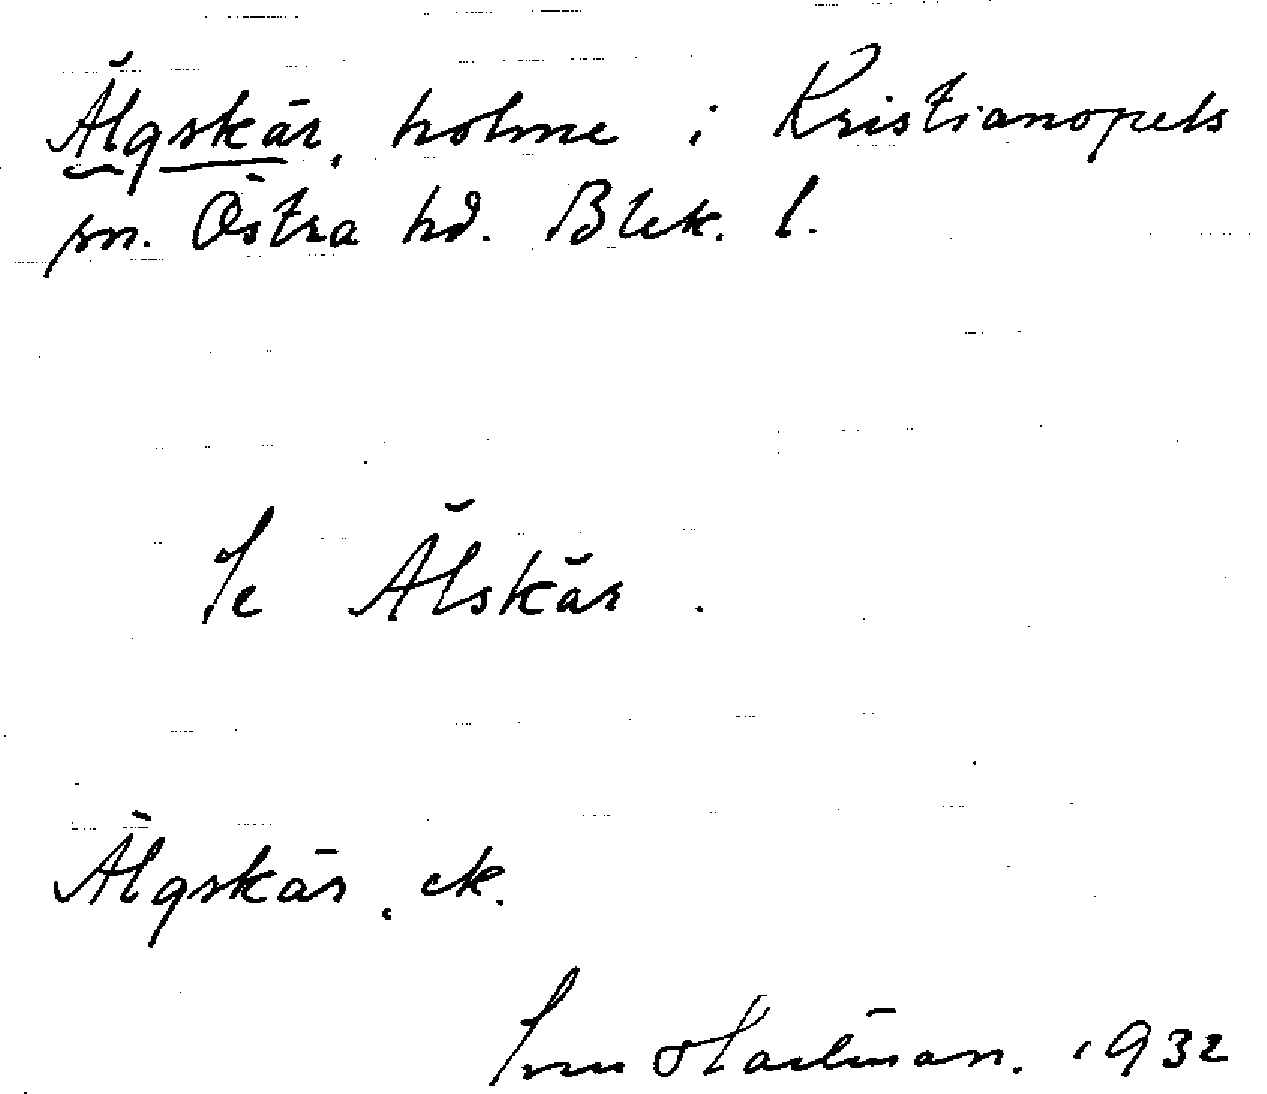 Älgskär, holme i Kristianopels
sn. Östra hd. Blek. l.
Se Älskär.
Älgskär, ek.
Sven Hartman. 1932